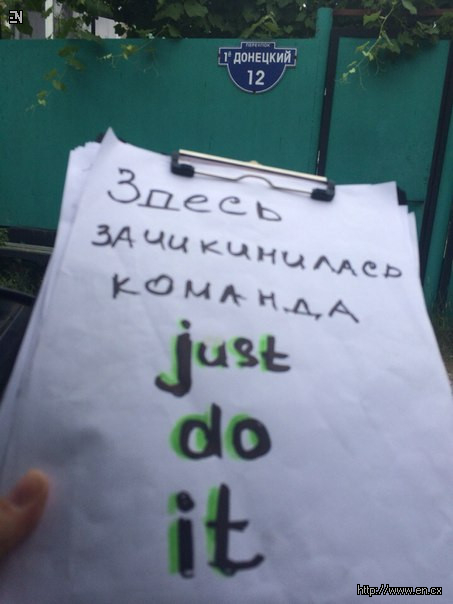 EN
переулок
1й ДОНЕЦКИЙ
12
Здесь
ЗАЧИКИНИЛАСЬ
КОМАНДА
just
do
it
http://www.en.cx